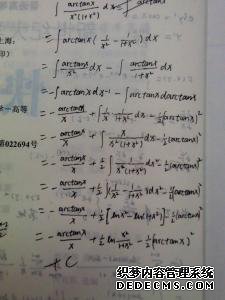 ∫ arctanx / x²(1+x²) dx = ∫
= ∫ arctanx ( 1/x² - 1/(1+x²) ) dx
= ∫ arctanx/x² dx - ∫ arctanx/(1+x²) dx
= - ∫ arctanx dx⁻¹ - ∫ arctanx darctanx
= - arctanx/x + ∫ 1/x · 1/(1+x²) dx - ½(arctanx)²
= - arctanx/x + ∫ x/(x²(1+x²)) dx - ½(arctanx)²
= - arctanx/x + ½ ∫ 1/(x²(1+x²)) dx² - ½(arctanx)²
= - arctanx/x + ½ ∫ ( 1/x² - 1/(1+x²) ) dx² - ½(arctanx)²
= - arctanx/x + ½ [ lnx² - ln(1+x²) ] - ½(arctanx)²
= - arctanx/x + ½ ln x²/(1+x²) - ½(arctanx)²
+ C
上海:
印)
高等
第022694号
织梦内容管理系统
DEDECMS.COM